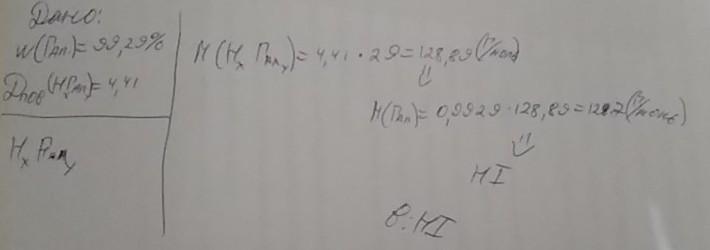 Дано:
w(Гал)= 99,29%
Dпов(HₓГалᵧ)= 4,41
HₓГалᵧ
M(HₓГалᵧ)= 4,41 · 29 = 128,89 (г/моль)
⇓
M(Гал)= 0,9929 · 128,89 = 128 (г/моль)
⇓
HI
В: HI